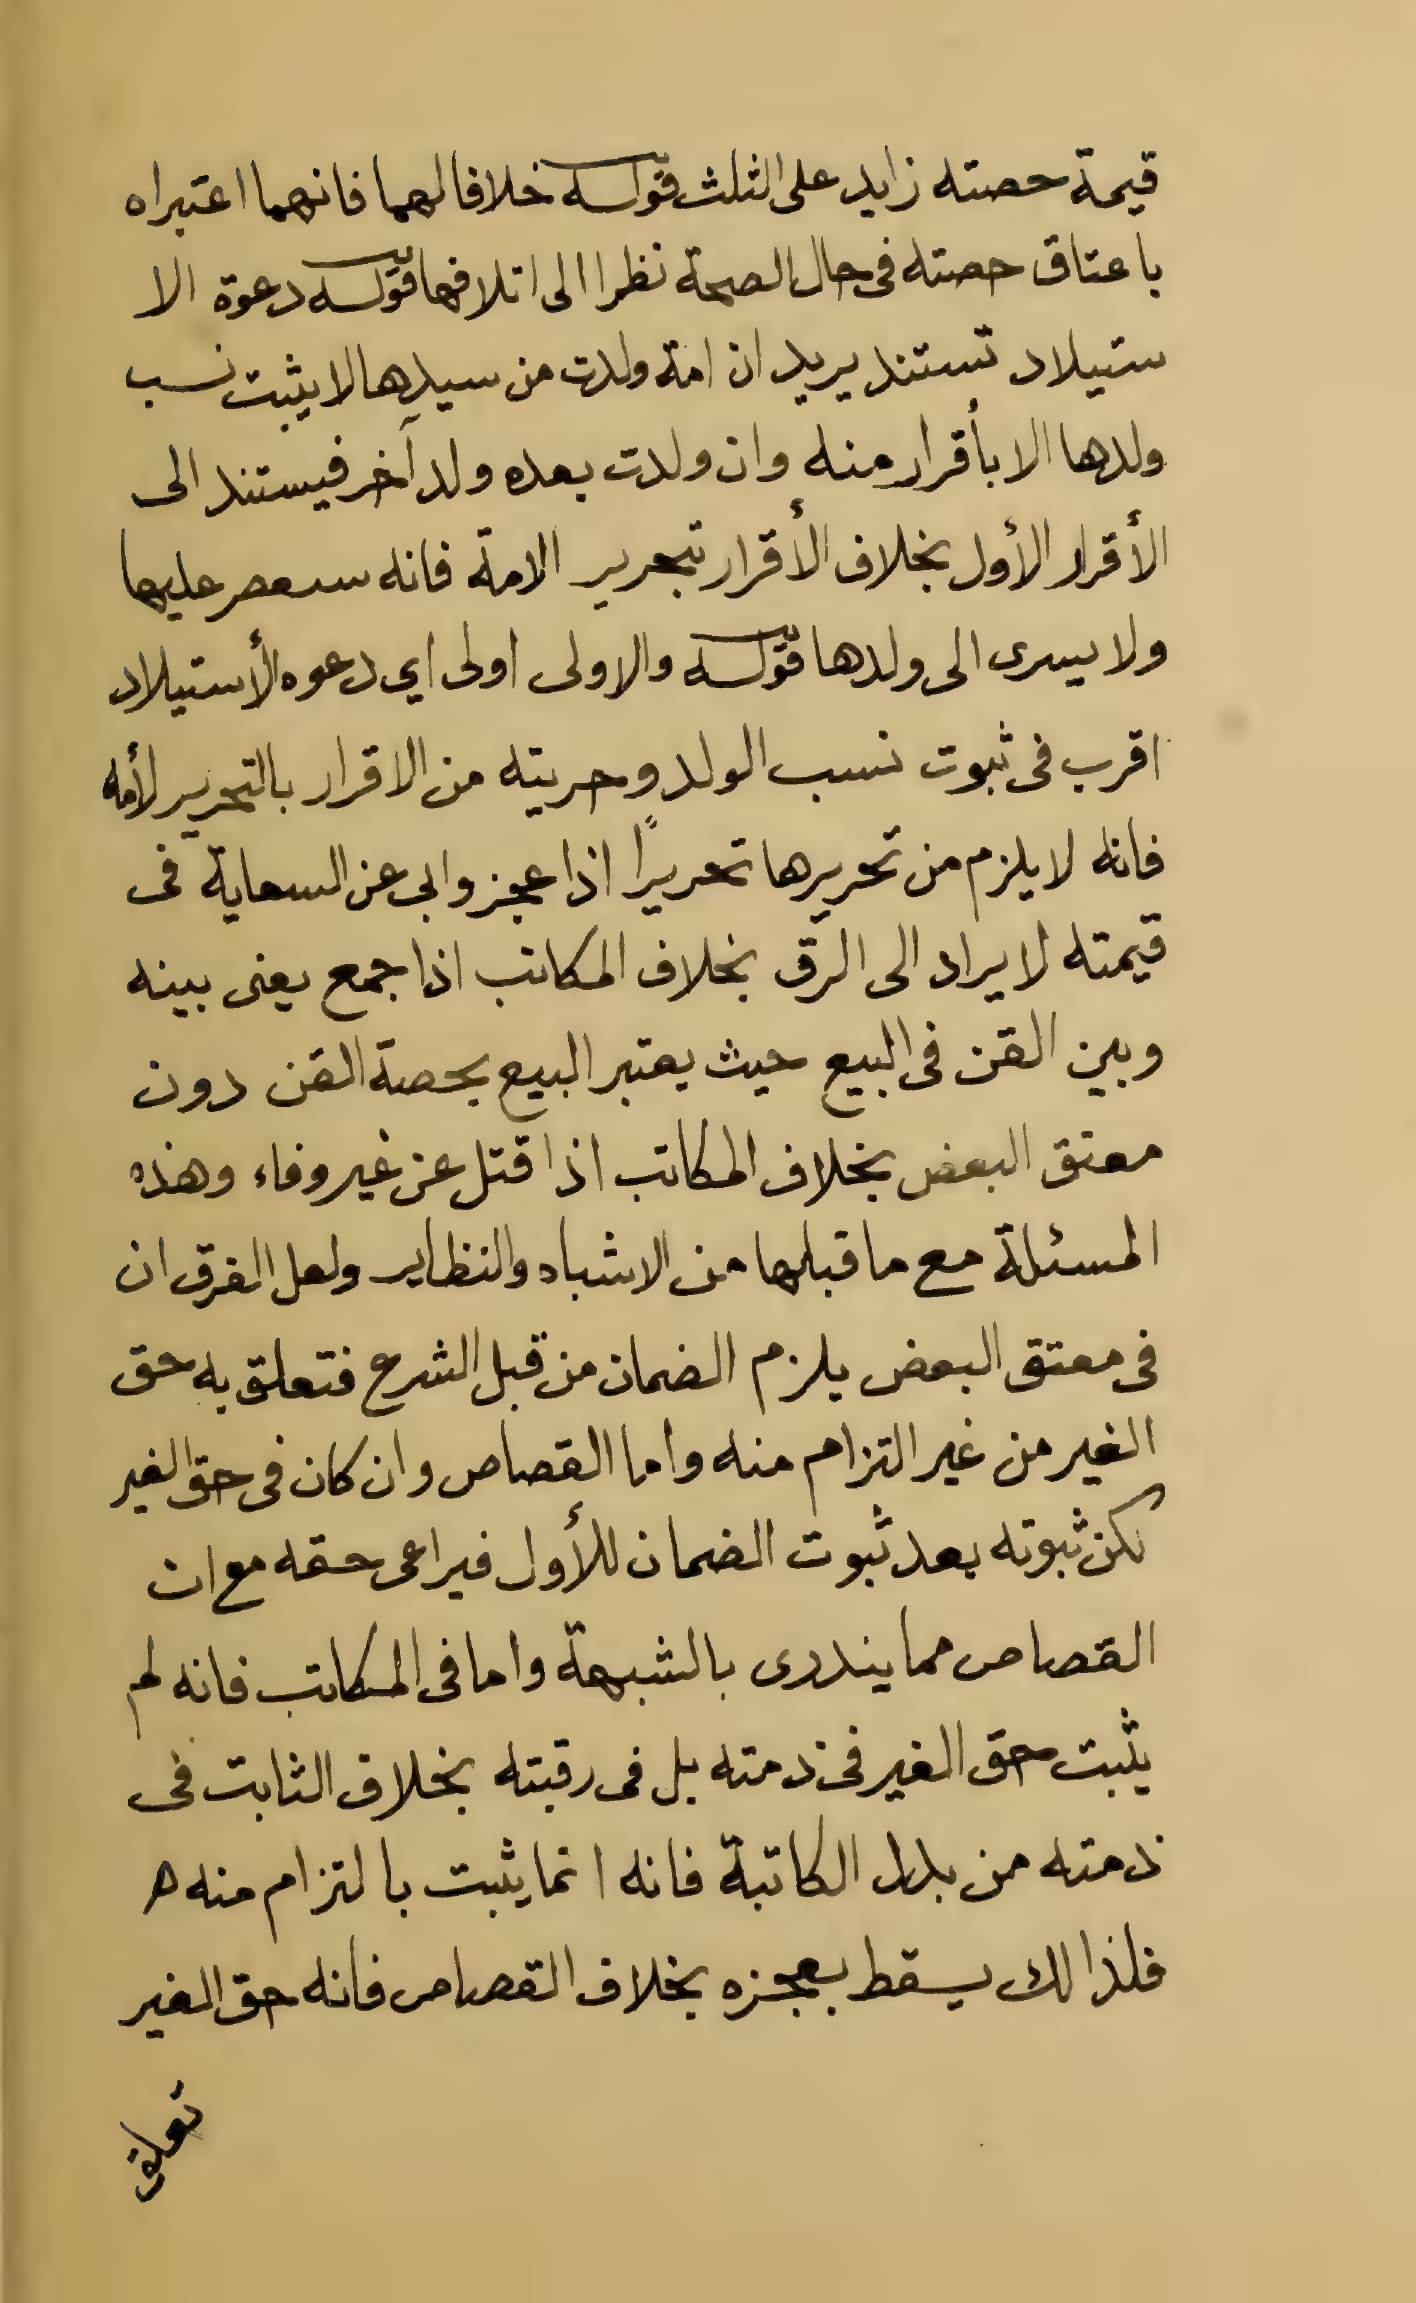 قيمة حصته زايد على الثلث قوله خلافا لهما فانهما اعتبراه
باعتاق حصته فى حال الصحة نظرا الى اتلافها قوله دعوة الا
ستيلاد تستند يريد ان امة ولدت من سيدها لا يثبت نسب
ولدها الا بأقرار منه وان ولدت بعده ولد آخر فيستند الى
الأقرار الأول بخلاف الأقرار بتحرير الامة فانه عليها
ولا يسرى الى ولدها قوله والاولى اولى اي دعوه الأستيلاد
اقرب فى ثبوت نسب الولد وحريته من الاقرار بالتحرير لأمه
فانه لا يلزم من تحريرها تحريرًا اذا عجز وابى عن السعاية فى
قيمته لا يراد الى الرّق بخلاف المكاتب اذا جمع يعنى بينه
وبين القن فى البيع حيث يعتبر البيع بحصة القن دون
معتق البعض بخلاف المكاتب اذا قتل عن غير وفاء وهذه
المسئلة مع ما قبلها من الاشباه والنظاير ولعل الفرق ان
فى معتق البعض يلزم الضمان من قبل الشرع فتعلق به حق
الغير من غير التزام منه واما القصاص وان كان فى حق الغير
لكن ثبوته بعد ثبوت الضمان للأول فيراعى حقه مع ان
القصاص مما يندرى بالشبهة واما فى المكاتب فانه لم
يثبت حق الغير فى ذمته بل فى رقبته بخلاف الثابت فى
ذمته من بدل الكاتبة فانه انما يثبت بالتزام منه ه
فلذالك يسقط بعجزه بخلاف القصاص فانه حق الغير
تعلق